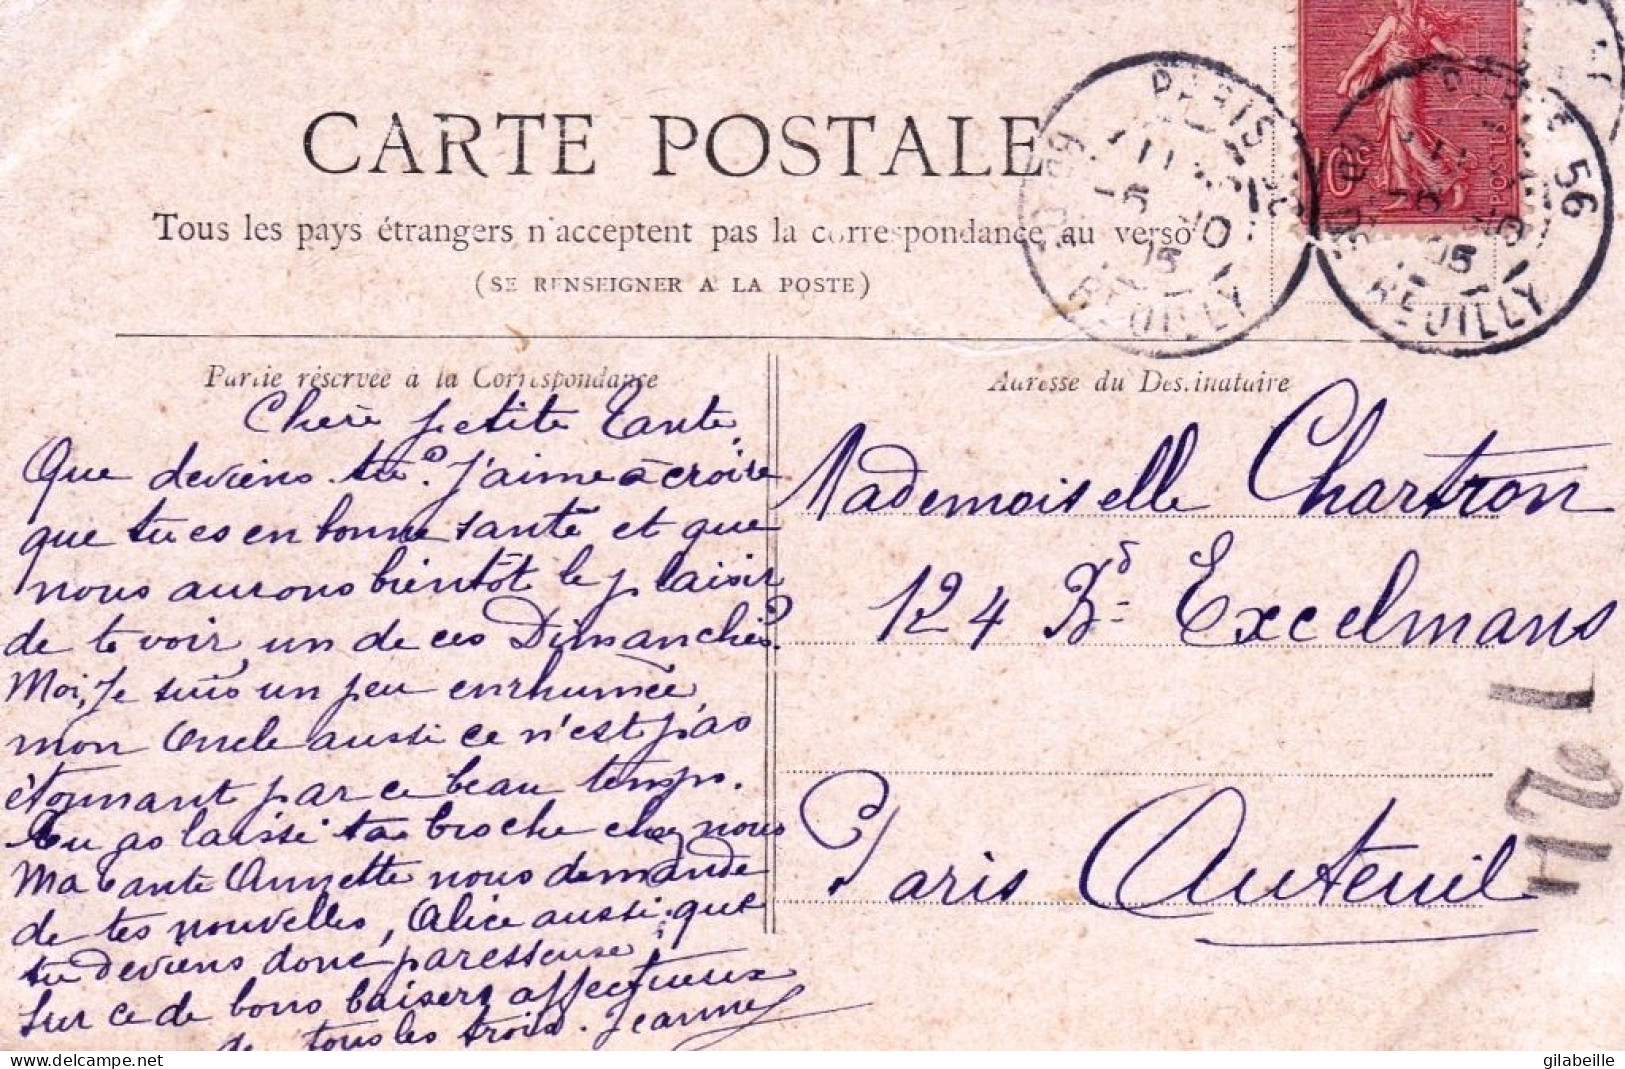 CARTE POSTALE
Tous les pays étrangers n'acceptent pas la correspondance au verso
(SE RENSEIGNER A LA POSTE)
Partie réservée à la Correspondance
Adresse du Destinataire
10c
POSTES
PARIS
REUILLY
PARIS 56
REUILLY
05
Chère petite Tante,
Que deviens-tu? J'aime à croire
que tu es en bonne santé et que
nous aurons bientôt le plaisir
de te voir un de ces Dimanches?
Moi, je suis un peu enrhumée
mon Oncle aussi ce n'est pas
étonnant par ce beau temps.
Tu as laissé ta broche chez nous
Ma tante Annette nous demande
de tes nouvelles, Alice aussi; que
tu deviens donc paresseuse!
Sur ce de bons baisers affectueux
de tous les trois. Jeanne
Mademoiselle Chartron
124 Bd Excelmans
Paris Auteuil
gilabeille